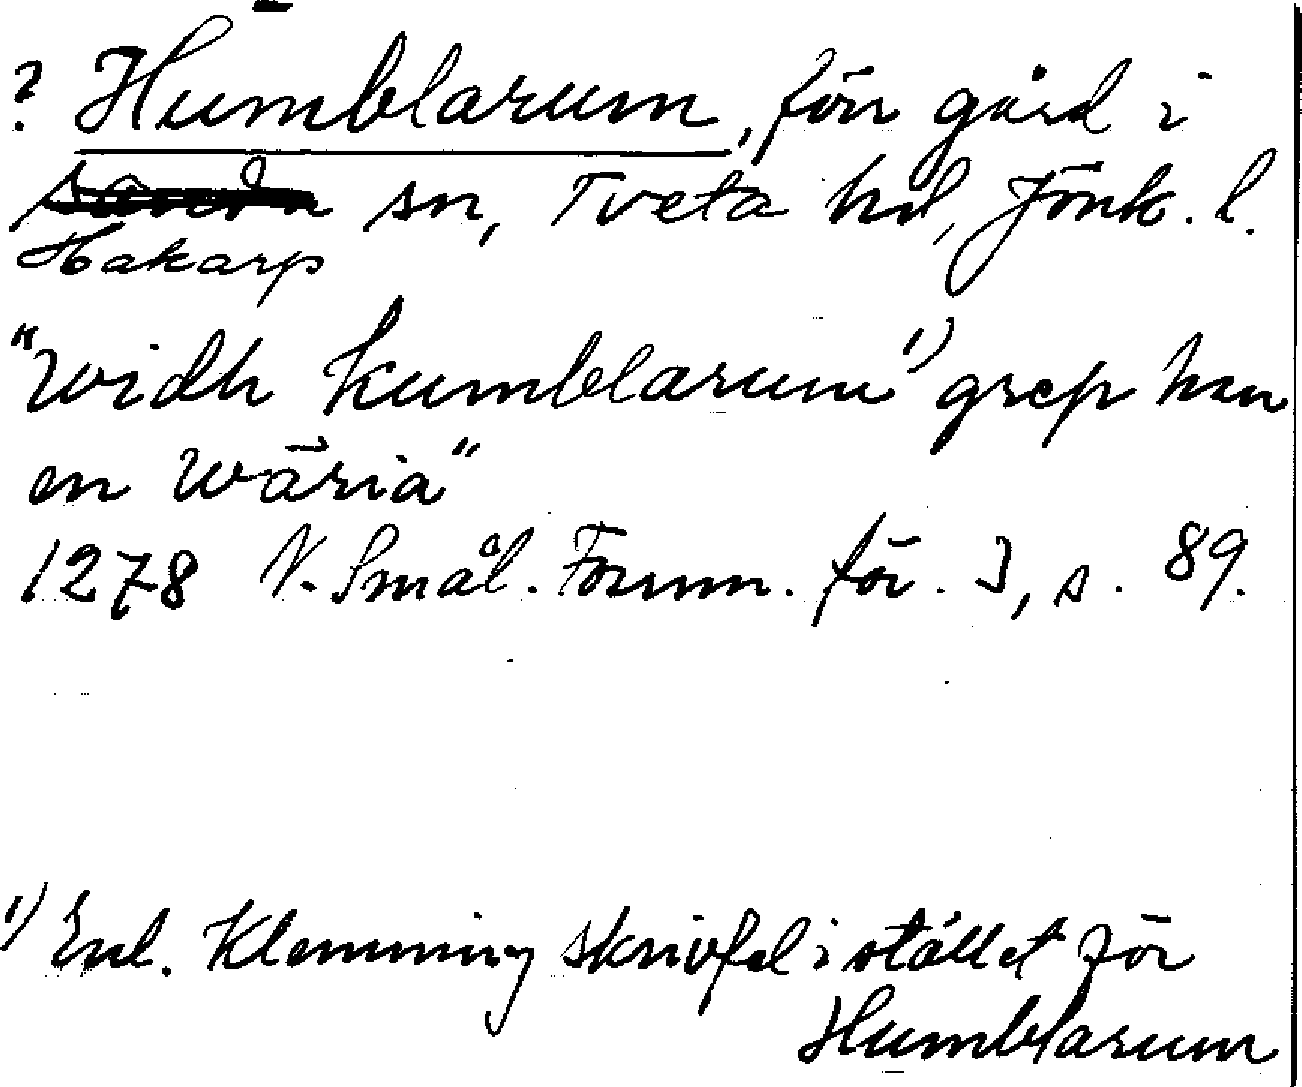 ? Humblarum, förr gård i
sn, Tveta hd, Jönk. l.
Hakarp
"widh kumblarum 1) grep han
en wäria"
1278 N. Smål. Fornm. för. I, s. 89.
1) Enl. Klemming skrivfel i stället för
Humblarum